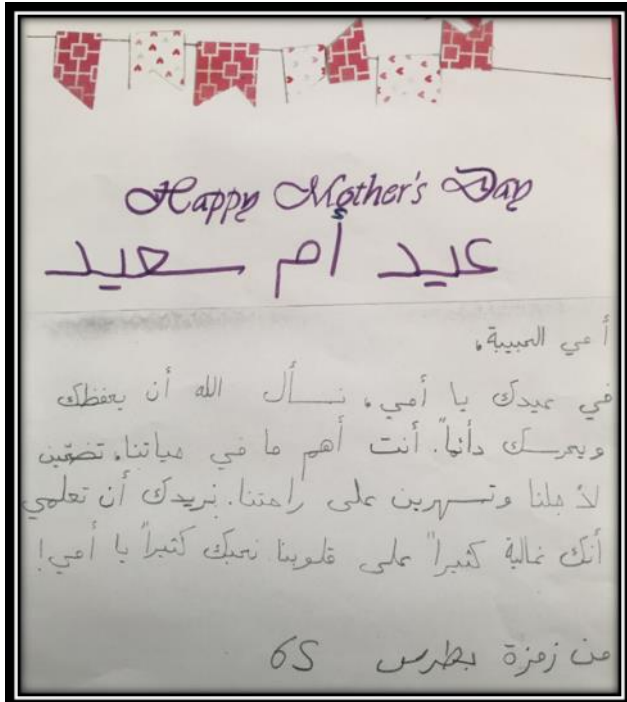 Happy Mother's Day
عيد أم سعيد
أمي الحبيبة،
في عيدك يا أمي، نسأل الله أن يحفظك
ويحرسك دائماً. أنت أهم ما في حياتنا، تضحّين
لأجلنا وتسهرين على راحتنا. نريدك أن تعلمي
أنك غالية كثيراً على قلوبنا نحبك كثيراً يا أمي!
من زمزة بطرس 6S